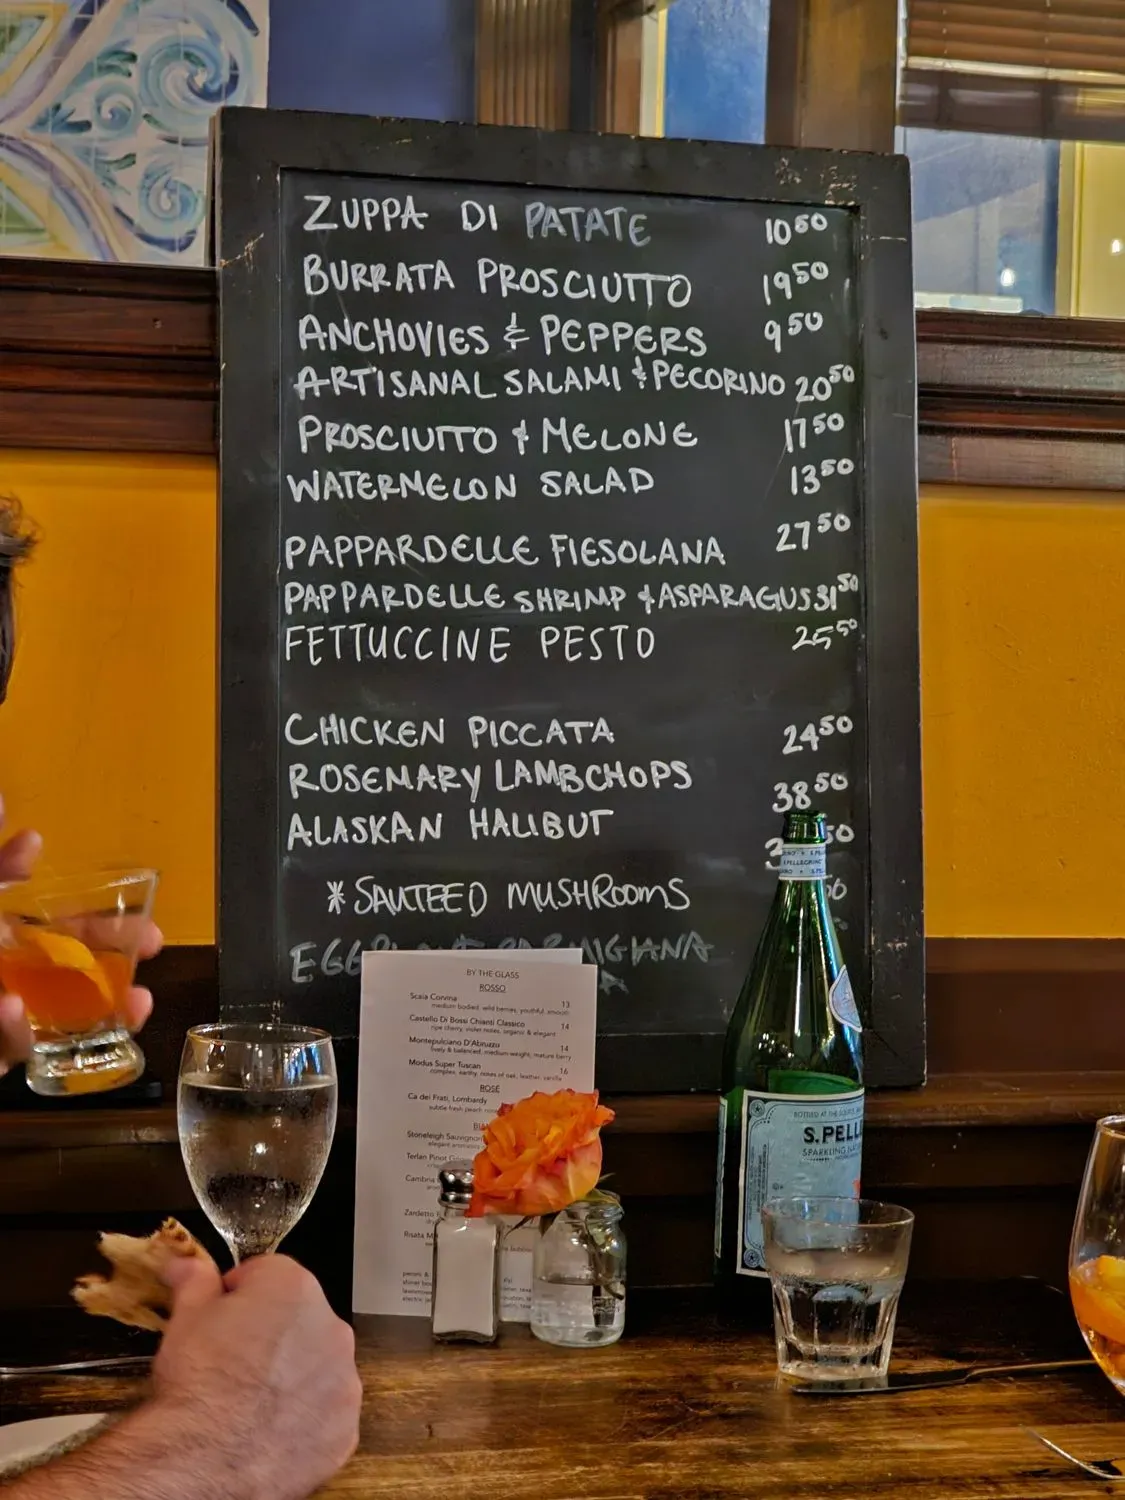 ZUPPA DI PATATE 10 50
BURRATA PROSCIUTTO 19 50
ANCHOVIES & PEPPERS 9 50
ARTISANAL SALAMI & PECORINO 20 50
PROSCIUTTO & MELONE 17 50
WATERMELON SALAD 13 50
PAPPARDELLE FIESOLANA 27 50
PAPPARDELLE SHRIMP & ASPARAGUS 31 50
FETTUCCINE PESTO 25 50
CHICKEN PICCATA 24 50
ROSEMARY LAMBCHOPS 38 50
ALASKAN HALIBUT 3 50
*SAUTEED MUSHROOMS
BY THE GLASS
ROSSO
Scaia Corvina 13
medium bodied, wild berries, youthful, smooth
Castello Di Bossi Chianti Classico 14
ripe cherry, violet notes, organic & elegant
Montepulciano D'Abruzzo 14
lively & balanced, medium-weight, mature berry
Modus Super Tuscan 16
complex, earthy, notes of oak, leather, vanilla
ROSÉ
Ca dei Frati, Lombardy
subtle fresh peach
Stoneleigh Sauvignon
Terlan Pinot
Cambria
Zardetto
S.PELLEGRINO
S.PELL
SPARKLING